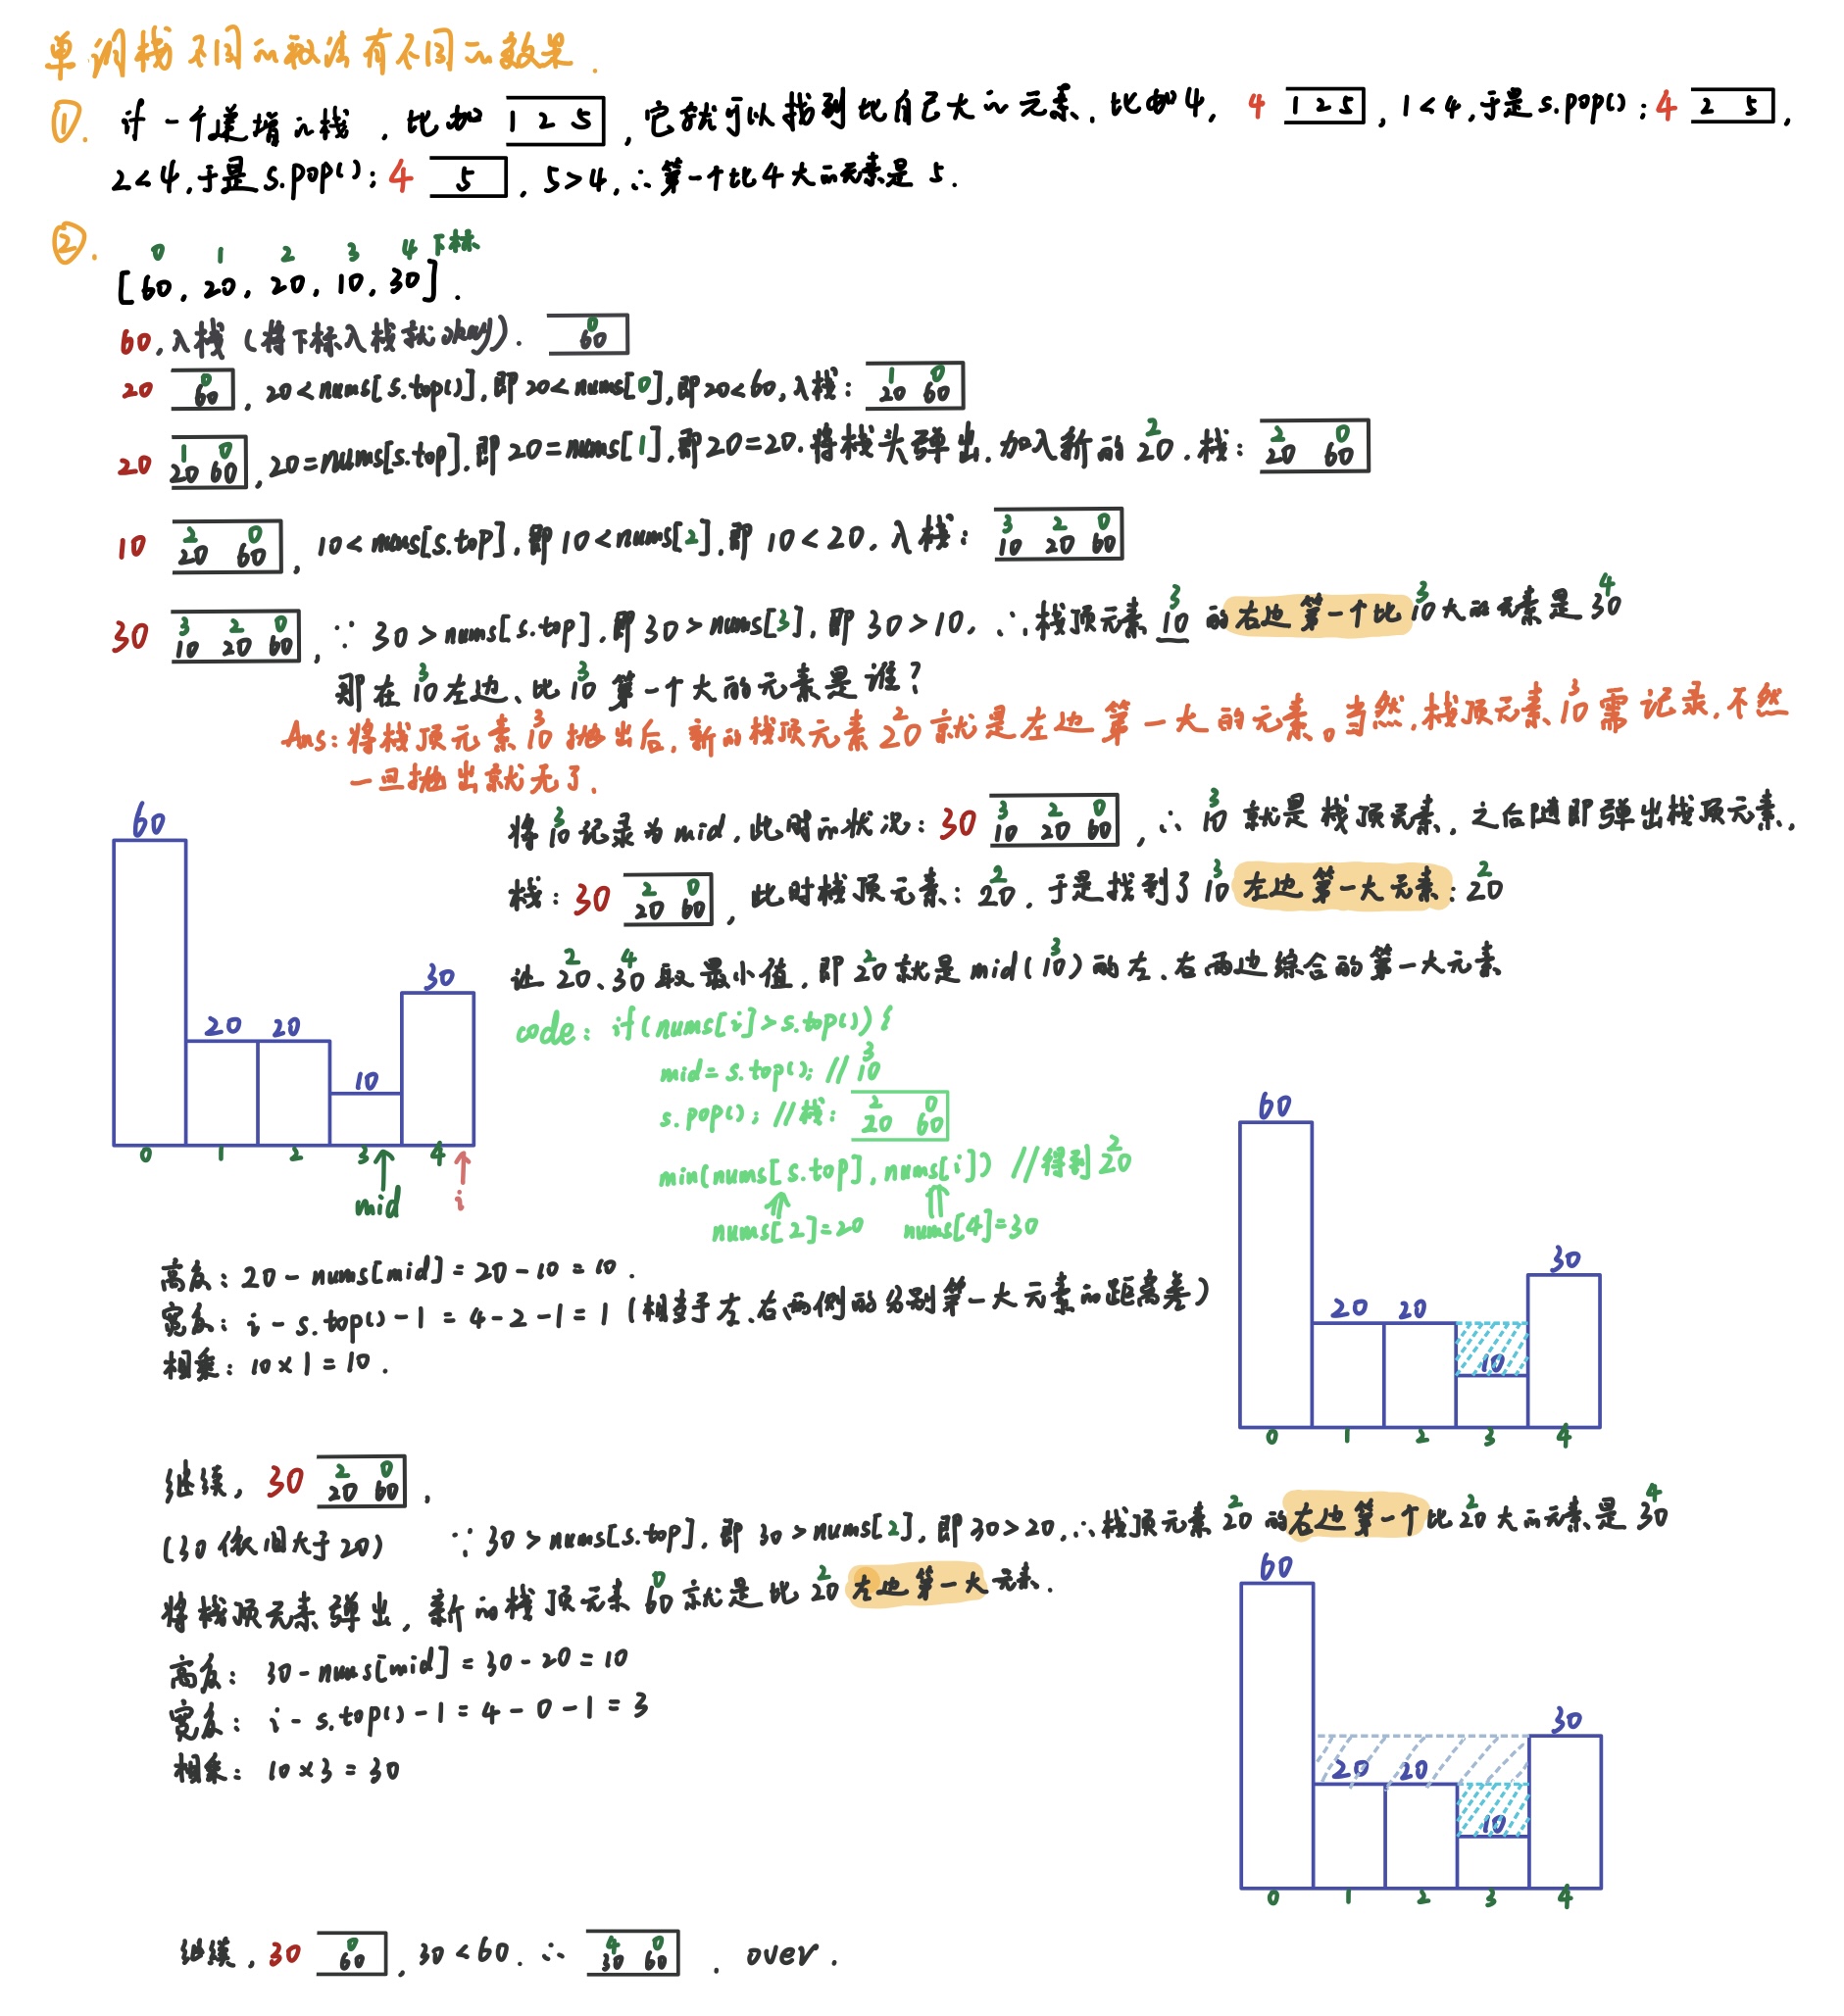 单调栈不同的取法有不同的效果.
①. 计一个递增的栈，比如 1 2 5，它就可以找到比自己大的元素. 比如4， 4 1 2 5，1<4,于是s.pop()；4 2 5，
2<4,于是s.pop()；4 5，5>4,∴第一个比4大的元素是 5.
②.
0 1 2 3 4 下标
[60, 20, 20, 10, 30].
60,入栈（将下标入栈就okay). 0
60
20 0
60，20<nums[s.top()],即20<nums[0],即20<60,入栈： 1 0
20 60
20 1 0
20 60，20=nums[s.top],即20=nums[1],即20=20.将栈头弹出,加入新的20 2.栈： 2 0
20 60
10 2 0
20 60，10<nums[s.top],即10<nums[2],即10<20,入栈： 3 2 0
10 20 60
30 3 2 0
10 20 60，∵30>nums[s.top],即30>nums[3],即30>10,∴栈顶元素10 3的右边第一个比10 3大的元素是30 4
那在10 3左边、比10 3第一个大的元素是谁？
Ans:将栈顶元素10 3抛出后,新的栈顶元素20 2就是左边第一大的元素。当然,栈顶元素10 3需记录,不然
一旦抛出就无了.
将10 3记录为mid,此时的状况：30 3 2 0
10 20 60，∴10 3就是栈顶元素. 之后随即弹出栈顶元素,
栈：30 2 0
20 60，此时栈顶元素：20 2. 于是找到了10 3左边第一大元素：20 2
让20 2、30 4取最小值,即20 2就是mid(10 3)的左、右两边综合的第一大元素
code：if(nums[i]>s.top()){
mid=s.top(); //10 3
s.pop(); //栈： 2 0
20 60
min(nums[s.top],nums[i]) //得到20 2
nums[2]=20 nums[4]=30
60
20 20
10
30
0 1 2 3 4
mid i
高度：20-nums[mid]=20-10=10.
宽度：i-s.top()-1=4-2-1=1（相当于左、右两侧的分别第一大元素的距离差）
相乘：10×1=10.
60
20 20
10
30
0 1 2 3 4
继续，30 2 0
20 60，
(30依旧大于20) ∵30>nums[s.top],即30>nums[2],即30>20,∴栈顶元素20 2的右边第一个比20 2大的元素是30 4
将栈顶元素弹出，新的栈顶元素60 0就是比20 2左边第一大元素.
高度：30-nums[mid]=30-20=10
宽度：i-s.top()-1=4-0-1=3
相乘：10×3=30
60
20 20
10
30
0 1 2 3 4
继续，30 0
60，30<60.∴ 4 0
30 60. over.